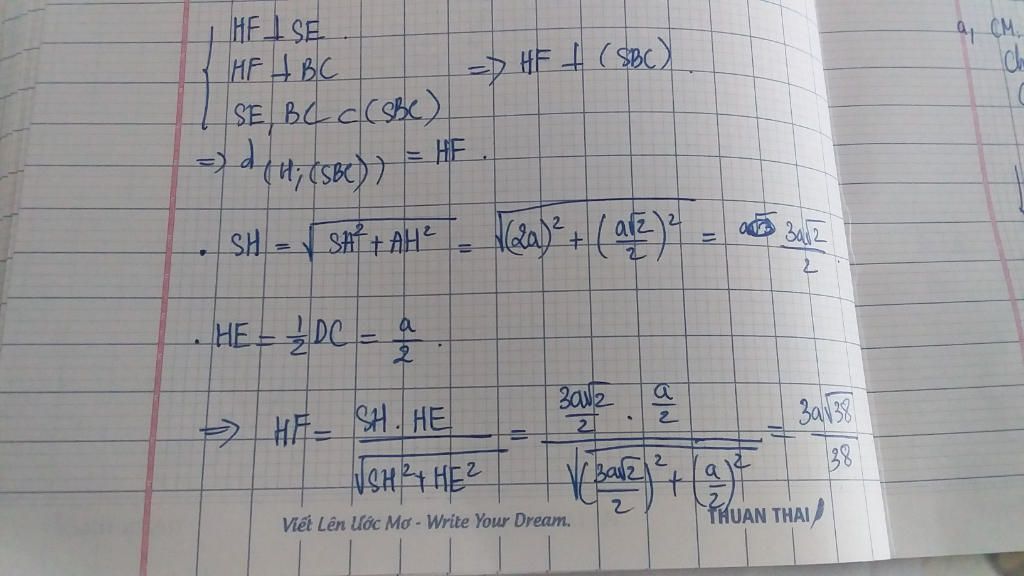 HF ⊥ SE
a, CM.
HF ⊥ BC => HF ⊥ (SBC).
SE, BC ⊂ (SBC)
=> d(H;(SBC)) = HF.
. SH = √(SA² + AH²) = √((2a)² + (a√2/2)²) = 3a√2/2
. HE = 1/2 DC = a/2.
=> HF = SH . HE / √(SH² + HE²) = (3a√2/2 . a/2) / √((3a√2/2)² + (a/2)²) = 3a√38/38
Viết Lên Ước Mơ - Write Your Dream.
THUAN THAI